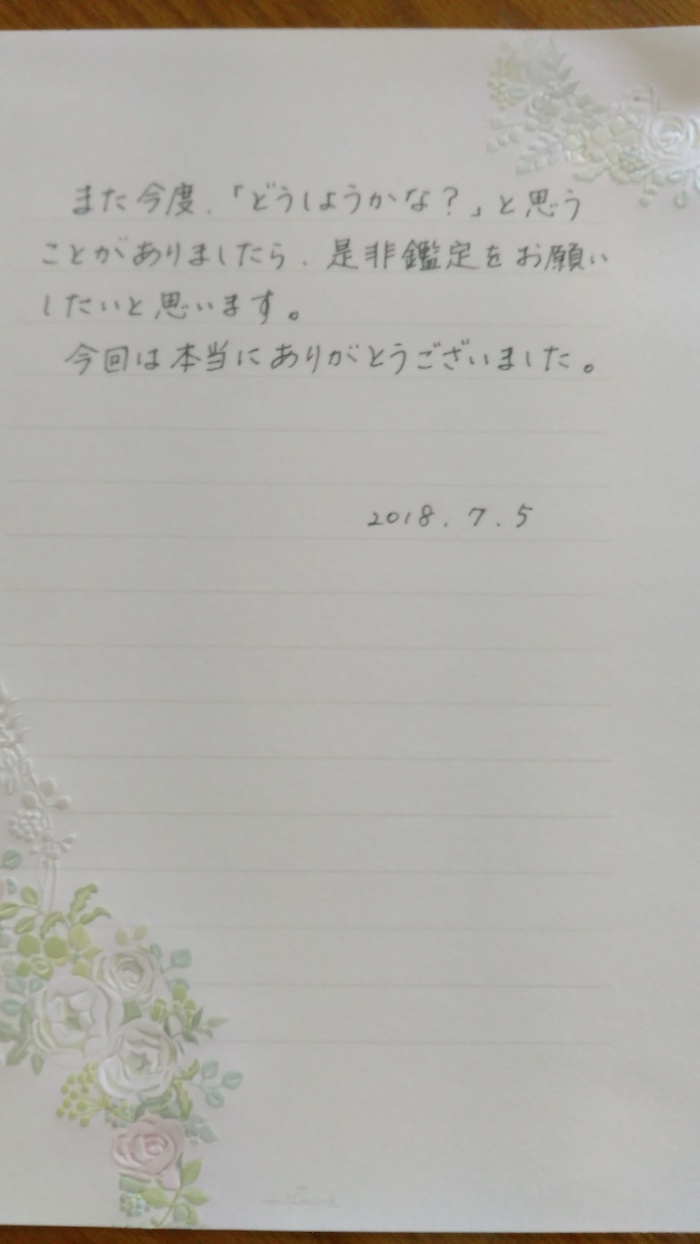 また今度、「どうしようかな？」と思う
ことがありましたら、是非鑑定をお願い
したいと思います。
今回は本当にありがとうございました。
2018.7.5